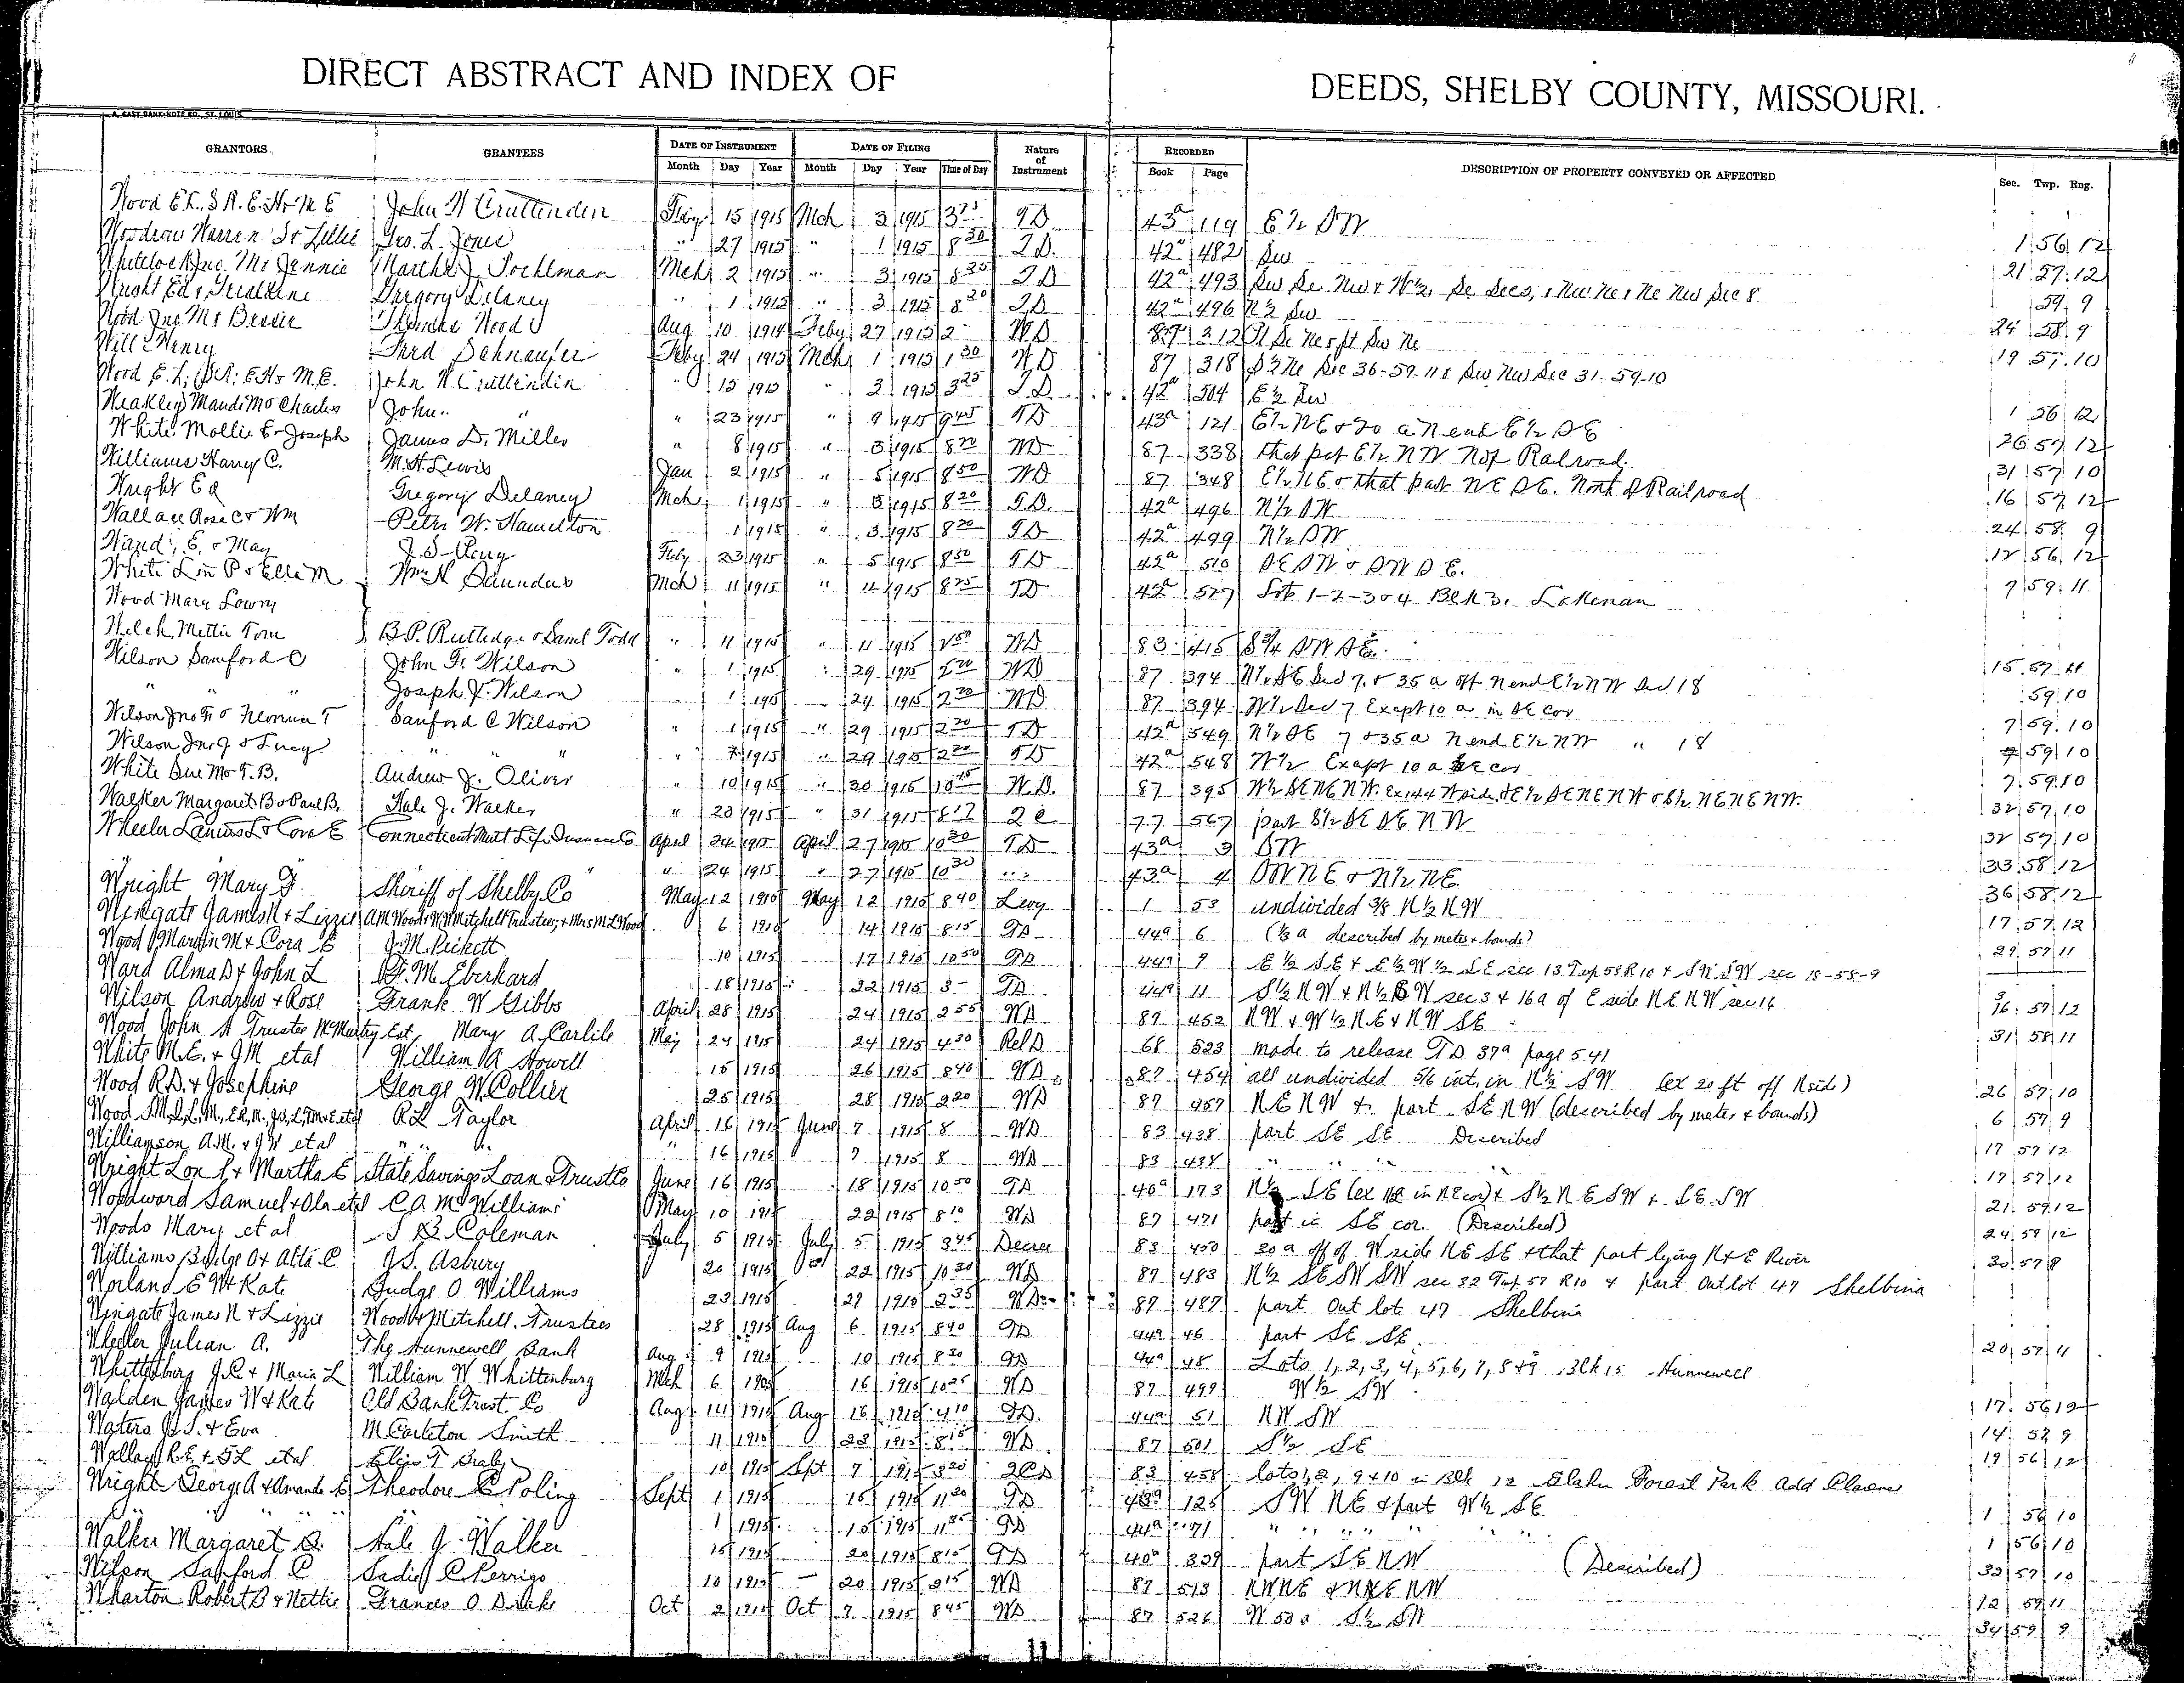 DIRECT ABSTRACT AND INDEX OF DEEDS, SHELBY COUNTY, MISSOURI.
GRANTORS GRANTEES DATE OF INSTRUMENT DATE OF FILING Nature of Instrument RECORDED DESCRIPTION OF PROPERTY CONVEYED OR AFFECTED Sec. Twp. Rng.
Month Day Year Month Day Year Time of Day Book Page
Wood E.L., S.R. E.H. & M E John W Cruttenden Feby 15 1915 Mch 3 1915 3 25 TD 43a 119 E½ SW 1 56 12
Woodrow Warren Lillie Geo. L. Jones " 27 1915 " 1 1915 8 30 TD. 42a 482 SW 21 57 12
Jno. Jennie Martha J. Pochlman Mch 2 1915 " 3 1915 8 25 TD 42a 493
Wright Ed & Gregory Delaney " 1 1915 " 3 1915 8 20 TD 42a 496 N½ SW
Wood Jno M & Bessie Thomas Wood Aug 10 1914 Feby 27 1915 2 - WD 87 312 Pt Se Ne & pt Sw Ne
Will Henry Fred Schnaufer Feby 24 1915 Mch 1 1915 1 30 WD 87 318 S½ Ne Sec 36-59-11 & Sw Nw Sec 31-59-10
Wood E.L; S.R; E.H & M.E. John W. Cruttendin " 15 1915 " 3 1915 3 25 TD 42a 504 E½ Sw 1 56 12
Weakley Maud & Charles John " " " 23 1915 " 9 1915 9 45 TD 43a 121 E½ NE & 20 a N end E½ SE 26 57 12
White Mollie E & Joseph James D. Miller " 8 1915 " 3 1915 8 20 WD 87 338 that pat E½ NW N of Railroad. 31 57 10
Williams Harry C. M.H. Lewis Jan 2 1915 " 5 1915 8 50 WD 87 348 E½ NE & that part NE SE. North of Railroad 16 57 12
Wright Ed Gregory Delaney Mch 1 1915 " 3 1915 8 20 TD. 42a 496 N½ SW 24 58 9
Wallace Rosa C & Wm Peter W. Hamilton 1 1915 " 3 1915 8 20 TD 42a 499 N½ SW 12 56 12
Wand, E. & May J. S. Perry Feby 23 1915 " 5 1915 8 50 TD 42a 510 SE SW & SW SE. 7 59 11
White Lin P & Ella M Wm H Saunders Mch 11 1915 " 11 1915 8 25 TD 42a 527 Lots 1-2-3 & 4 Blk 3. Lakenan
Wood Mary Lowry
Welch, Mettie Tom B.P. Rutledge & Saml Todd " 11 1915 " 11 1915 WD 83 415 SW SE. 15 57 11
Wilson Samford C John F. Wilson " 1 1915 " 29 1915 2 20 WD 87 394 N½ SE Sec 7. & 35 a off N end E½ NW Sec 18 59 10
" " " Joseph J. Wilson 1 1915 " 29 1915 2 20 WD 87 394 W½ Sec 7 Except 10 a in SE cor 7 59 10
Wilson Jno F & T Sanford C Wilson " 1 1915 " 29 1915 2 20 TD 42a 549 N½ SE 7 & 35a N end E½ NW " 18 7 59 10
Wilson Jno J & Lucy " " " " 1915 " 29 1915 2 20 TD 42a 548 W½ Exept 10 a SE cor 7 59 10
White Sue M & T.B. Andrew J. Oliver " 10 1915 " 30 1915 10 25 W.D. 87 395 32 57 10
Walker Margaret B & Paul B. Hale J. Walker " 23 1915 " 31 1915 8 17 77 567 part S½ SE SE NW 32 57 10
Wheeler Lewis L & Cora E Connecticut Mutt Life Insurance Co April 24 1915 April 27 1915 10 30 TD 43a 3 SW 33 58 12
" 24 1915 " 27 1915 10 30 " 43a 4 SW NE & N½ NE 36 58 12
Wright Mary F. Sheriff of Shelby Co May 12 1915 May 12 1915 8 40 Levy 1 53 undivided 3/8 N½ NW 17 57 12
Wingate James N & Lizzie A.M. Wood & W.W Mitchell Trustees; & Mrs M.L Wood 6 1915 14 1915 8 15 TD 44a 6 (½ a described by metes & bounds) 29 57 11
Wood Marvin M & Cora E J. M. Pickett 10 1915 17 1915 10 50 TD 44a 9 E½ SE & E½ W½ SE sec 13 Twp 58 R10 & SW SW sec 18-58-9
Ward Alma B & John L F. M. Eberhard 18 1915 22 1915 3 - TD 44a 11 S½ NW & N½ SW sec 3 & 16 a of E side NE NW sec 16 57 12
Wilson Andrew & Rose Frank W Gibbs April 28 1915 24 1915 2 55 WD 87 452 NW & W½ NE & NW SE 31 58 11
Wood John H Trustee McMurtry Est, Mary A. Carlile May 24 1915 24 1915 4 30 Rel D 68 523 made to release TD 37a page 541
White M.E. & J M et al William A Howell 15 1915 26 1915 8 40 WD 87 454 all undivided 5/6 int. in N½ SW (ex 20 ft off N side) 26 57 10
Wood R.D. & Josephine George W. Collier 25 1915 28 1915 2 20 WD 87 457 NE NW & part SE NW (described by metes & bounds) 6 57 9
Wood R L Taylor April 16 1915 June 7 1915 8 WD 83 438 part SE SE Described 17 57 12
Williamson A.M. & J W et al " " " " 16 1915 7 1915 8 WD 83 438 " " " 17 57 12
Wright Lon & Martha E State Savings Loan & Trust Co June 16 1915 18 1915 10 50 TD 40a 173 N½ SE (ex in NE cor) & S½ NE SW & SE SW 21 59 12
Woodward Samuel & Ola et al C A McWilliams May 10 1915 22 1915 8 10 WD 87 471 part in SE cor. (Described) 24 57 12
Woods Mary et al S B Coleman July 5 1915 July 5 1915 3 45 Decree 83 450 20 a off of W side NE SE & that part lying N & E River 30 57 9
Williams Judge O & Alta C J.S. Asbury 20 1915 22 1915 10 30 WD 87 483 N½ SE SW SW sec 32 Twp 57 R10 & part Outlot 47 Shelbina
Worland E W & Kate Judge O Williams 23 1915 29 1915 2 35 WD 87 487 part Out lot 47 Shelbina
Wingate James N & Lizzie Wood & Mitchell, Trustees 28 1915 Aug 6 1915 8 40 TD 44a 46 part SE SE 20 57 11
Wheeler Julian A. The Hunnewell Bank Aug 9 1915 10 1915 8 30 TD 44a 48 Lots 1, 2, 3, 4, 5, 6, 7, 8 & 9 Blk 15 Hunnewell
Whittenburg J.R & Maria L William W Whittenburg Mch 6 16 1915 10 25 WD 87 499 W½ SW 17 56 12
Walden James W & Kate Old Bank Trust Co Aug 14 1915 Aug 16 1915 4 10 TD. 44a 51 NW SW 14 9
Waters J.S. & Eva M Carleton Smith 11 1915 23 1915 8 15 WD 87 501 S½ SE 19 56 12
R.E & et al 10 1915 Sept 7 1915 3 20 83 458 lots 1, 2, 9 & 10 in Blk 12 Forest Park Add Clarence
Wright George A & Amanda E Theodore C Poling Sept 1 1915 15 1915 11 30 TD 125 SW NE & part W½ SE 1 56 10
" " " " 1 1915 15 1915 TD 44a 71 " " " " " 1 56 10
Walker Margaret B. Hale J. Walker 15 1915 20 1915 8 15 TD 40a part SE NW (Described) 32 57 10
Wilson Sanford C Sadie C Perrigo 10 1915 20 1915 WD 87 513 NW NE & N½ NE NW 12 59 11
Wharton Robert B & Nettie Frances O Drake Oct 2 1915 Oct 7 1915 8 45 WD 87 526 W 50 a S½ SW 34 59 9